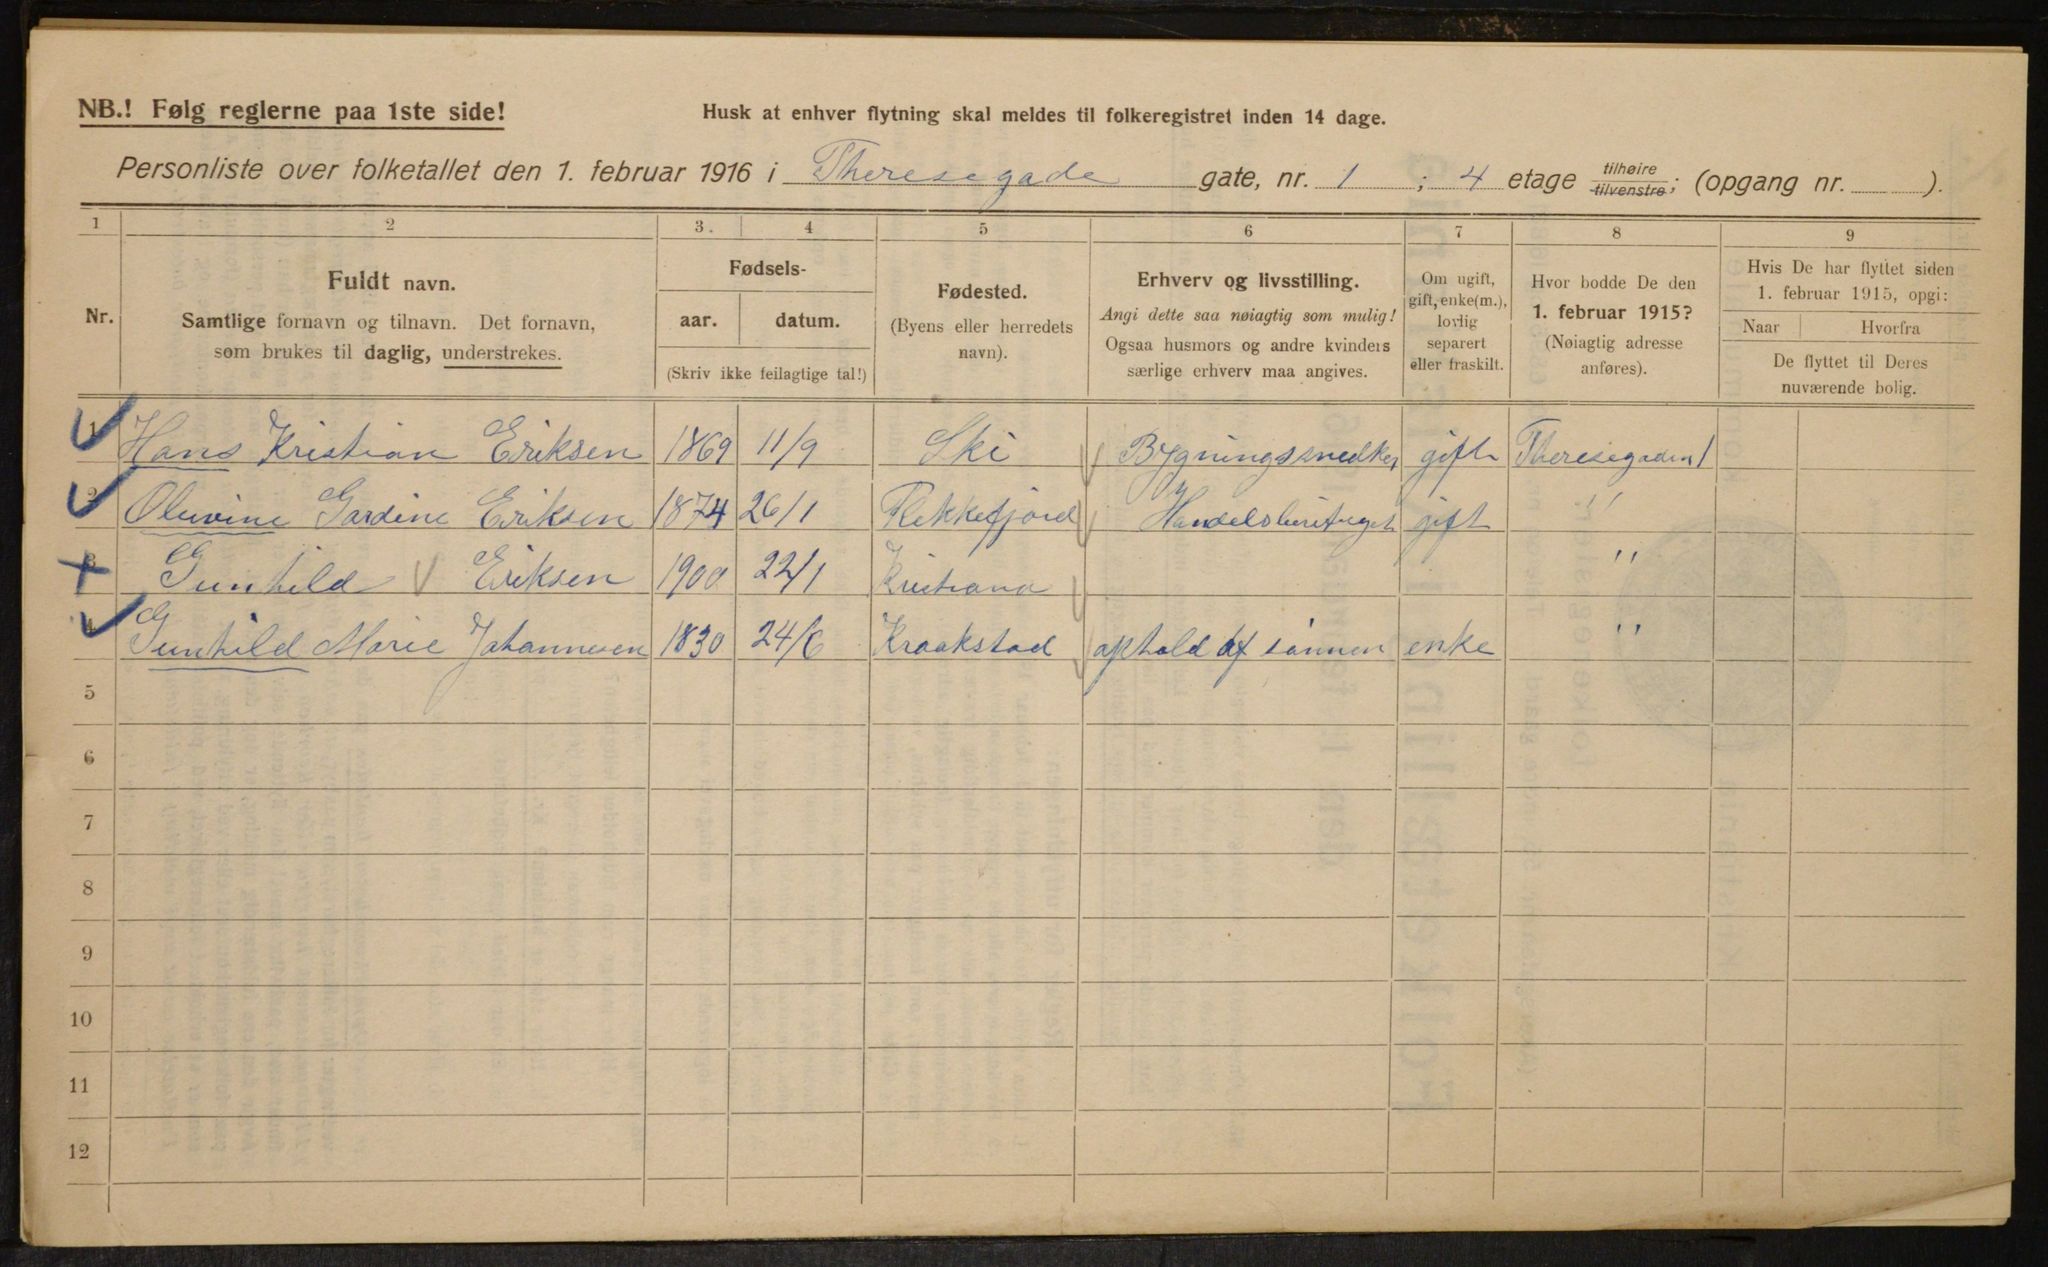 NB.! Følg reglerne paa 1ste side!
Husk at enhver flytning skal meldes til folkeregistret inden 14 dage.
Personliste over folketallet den 1. februar 1916 i Theresegade gate, nr. 1 ; 4 etage tilhøire tilvenstre; (opgang nr. ).
1 2 3. 4 5 6 7 8 9
Nr.
Fuldt navn.
Samtlige fornavn og tilnavn. Det fornavn,
som brukes til daglig, understrekes.
Fødsels-
aar. datum.
(Skriv ikke feilagtige tal!)
Fødested.
(Byens eller herredets
navn).
Erhverv og livsstilling.
Angi dette saa nøiagtig som mulig!
Ogsaa husmors og andre kvinders
særlige erhverv maa angives.
Om ugift,
gift, enke(m.),
lovlig
separert
eller fraskilt.
Hvor bodde De den
1. februar 1915?
(Nøiagtig adresse
anføres).
Hvis De har flyttet siden
1. februar 1915, opgi:
Naar Hvorfra
De flyttet til Deres
nuværende bolig.
1 Hans Kristian Eriksen 1869 11/9 Ski Bygningssnedker gift Theresegaden 1
2 Oluvine Gardine Eriksen 1874 26/1 Flekkefjord gift "
3 Gunhild Eriksen 1900 22/1 Kristiana "
4 Gunhild Marie Johannesen 1830 24/6 Kraakstad ophold af sønnen enke "
5
6
7
8
9
10
11
12